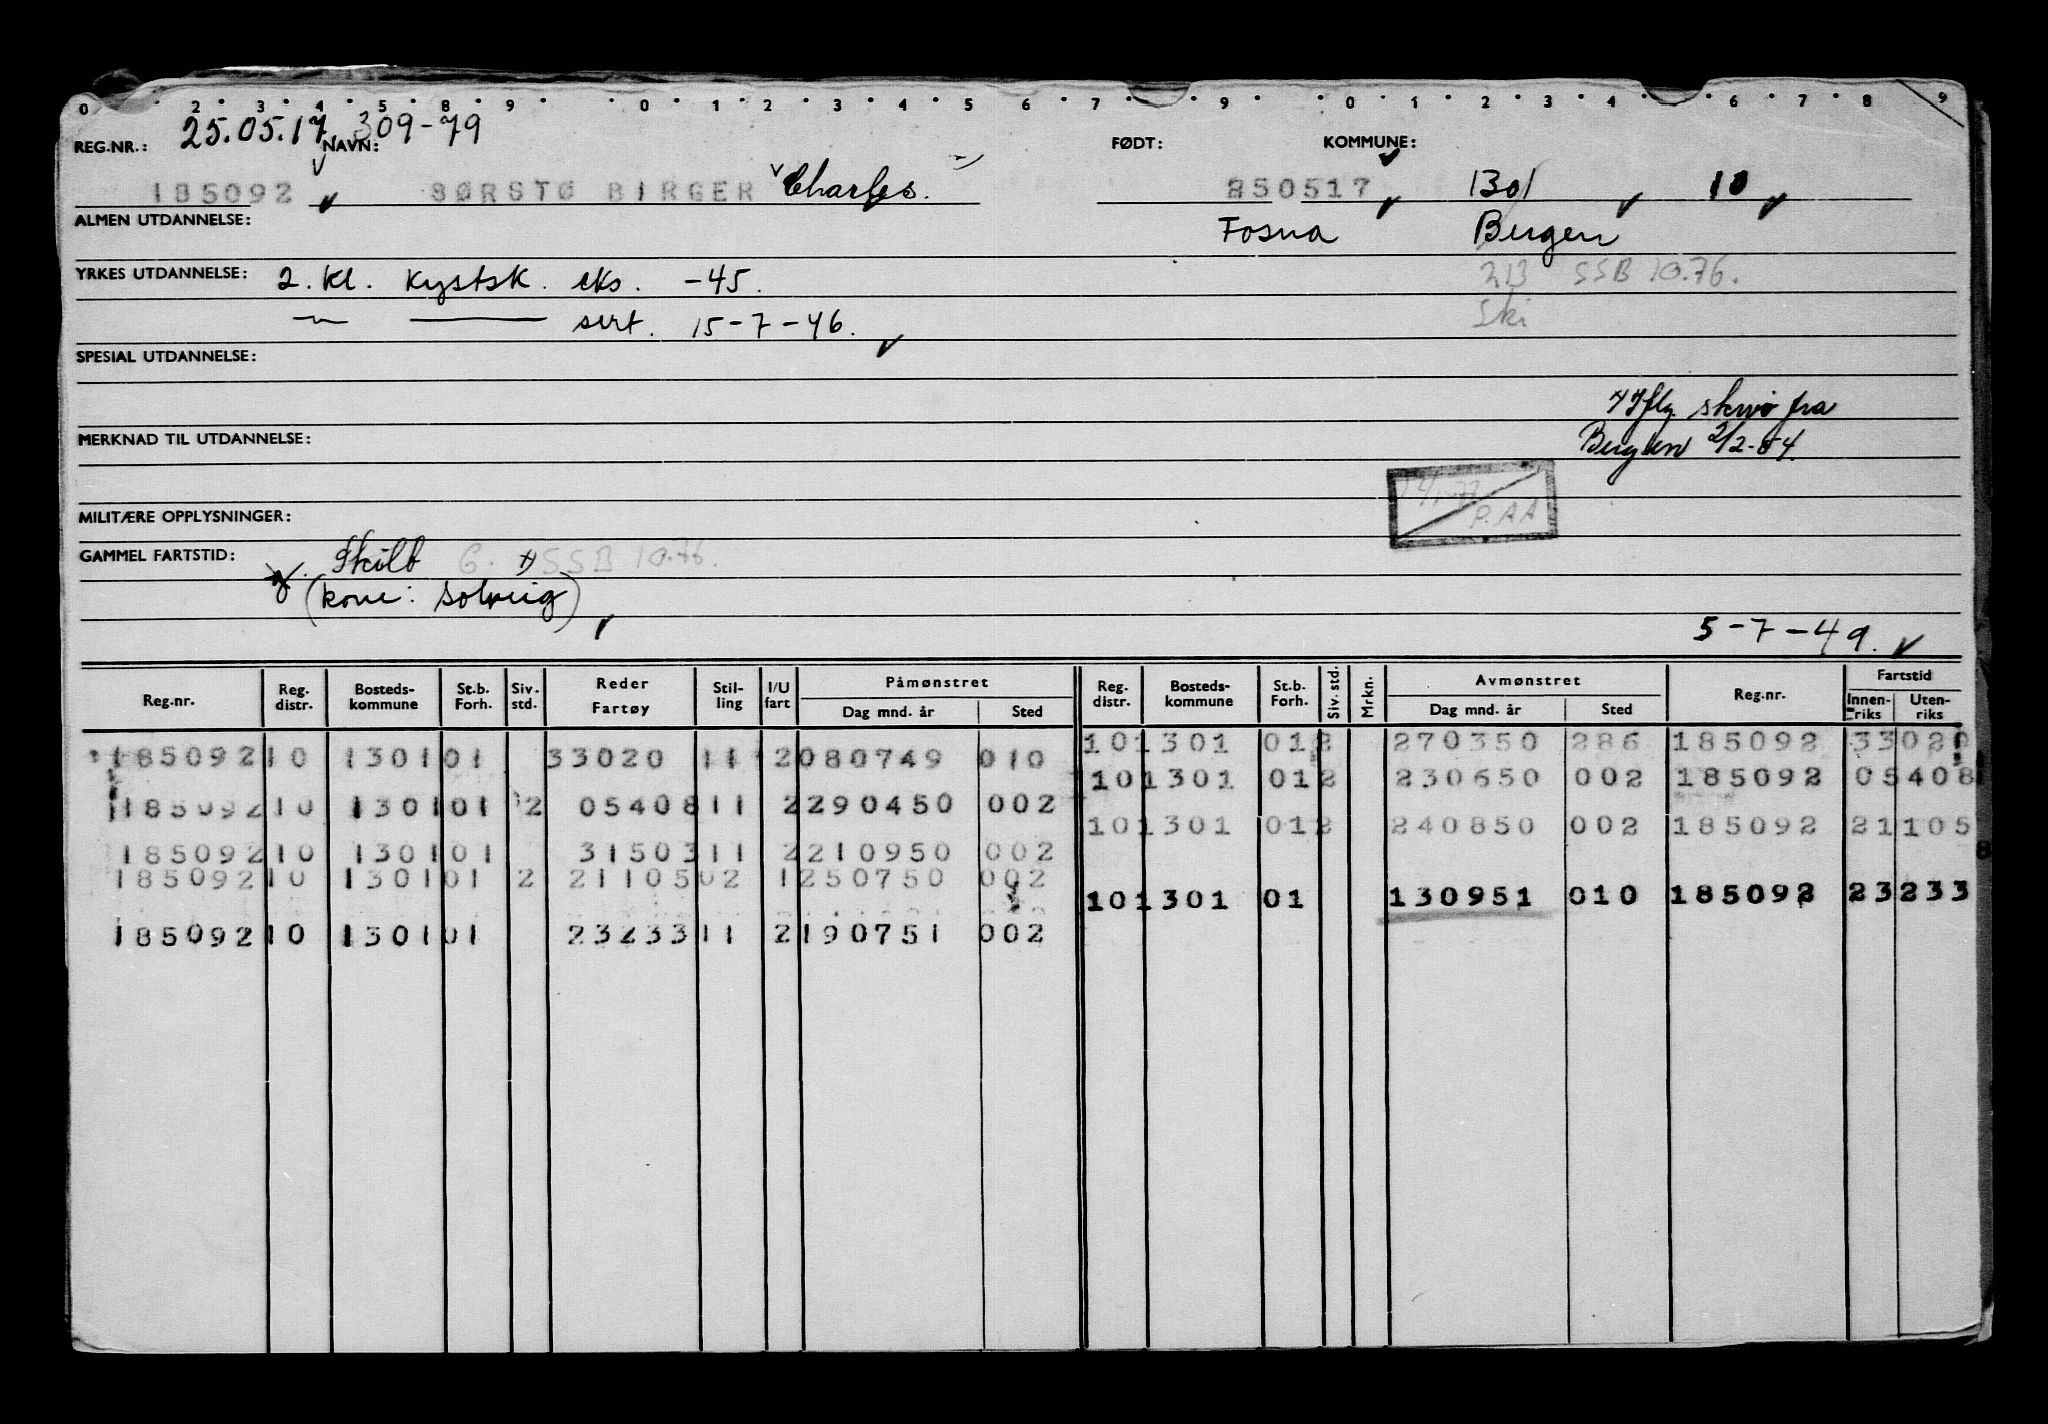 0 2 3 4 5 8 9 0 1 2 3 4 5 6 7 9 0 1 2 3 4 6 7 8 9
REG.NR.: 25.05.17 NAVN: 309-79 FØDT: KOMMUNE:
185092 SØRSTØ BIRGER Charles. 250517 1301 10
ALMEN UTDANNELSE: Fosna Bergen
YRKES UTDANNELSE: 2. kl. kystsk. eks. -45. 213 SSB 10.76.
sert. 15-7-46. Ski
SPESIAL UTDANNELSE:
fra
MERKNAD TIL UTDANNELSE: Bergen 2/2-54.
P.AA
MILITÆRE OPPLYSNINGER:
GAMMEL FARTSTID: G. SSB 10.76.
(kone: Solveig)
5-7-49.
Reg.nr. Reg. distr. Bosteds-kommune St.b. Forh. Siv. std. Reder Fartøy Stil-ling I/U fart Påmønstret Dag mnd. år Sted Reg. distr. Bosteds-kommune St.b. Forh. Siv. std. Mrkn. Avmønstret Dag mnd. år Sted Reg.nr. Fartstid Innen-riks Uten-riks
185092 10 1301 01 33020 11 2 080749 010 10 1301 01 2 270350 286 185092 33020
185092 10 1301 01 2 05408 11 2 290450 002 10 1301 01 2 230650 002 185092 05408
185092 10 1301 01 31503 11 2 210950 002 10 1301 01 2 240850 002 185092 21105
185092 10 1301 01 2 21105 02 1 250750 002 10 1301 01 130951 010 185092 23233
185092 10 1301 01 23233 11 2 190751 002